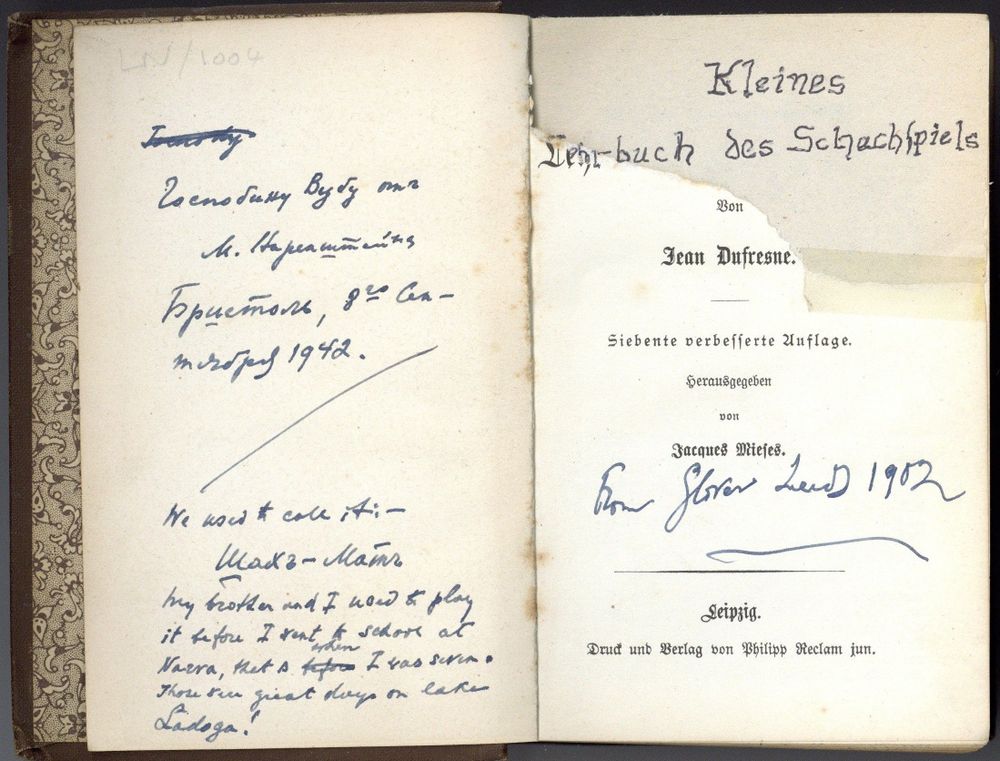 LN/1004
Господину Вубу отъ
М.
Бристоль, 8го Сен-
тября 1942.
We used to call it:-
Шахъ-Матъ
My brother and I used to play
it before I went to school at
Narva, that is before when I was seven.
Those were great days on lake
Ladoga!
Kleines
Lehrbuch des Schachſpiels
Von
Jean Dufresne.
Siebente verbeſſerte Auflage.
Herausgegeben
von
Jacques Mieſes.
From Glover Leeds 1902
Leipzig.
Druck und Verlag von Philipp Reclam jun.